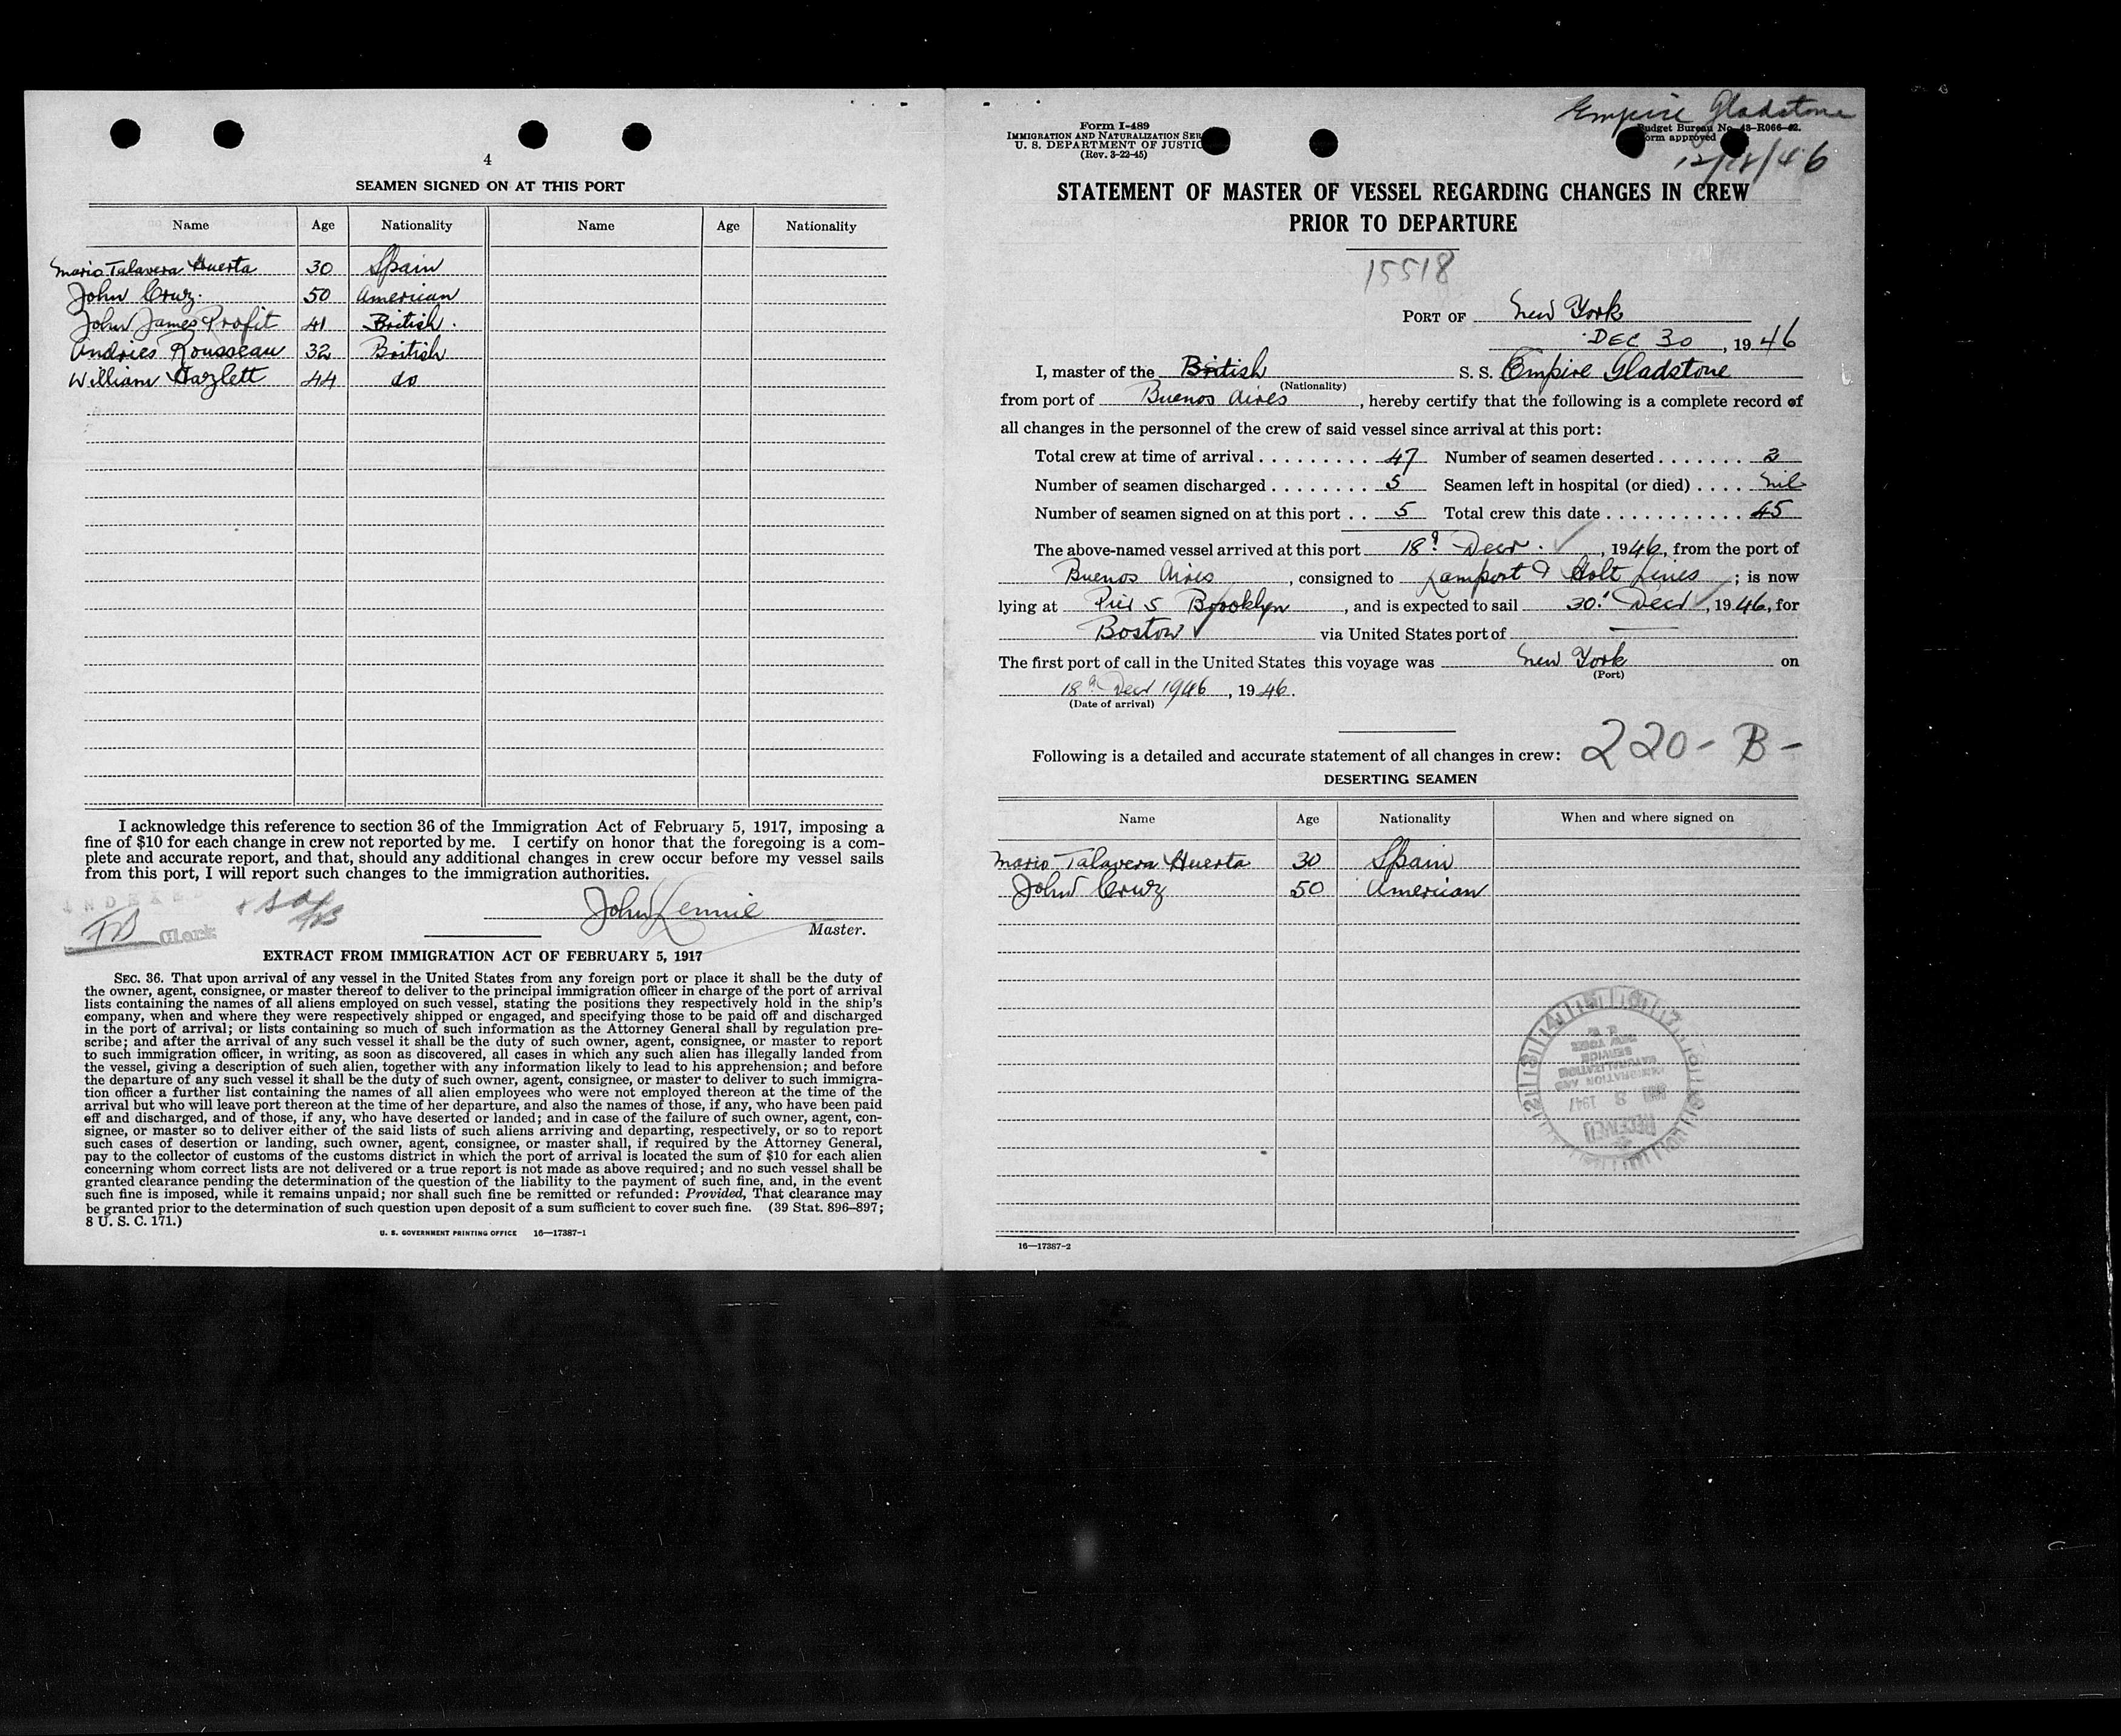 4
SEAMEN SIGNED ON AT THIS PORT
Name Age Nationality Name Age Nationality
Mario Talavera Huerta 30 Spain
John Cruz. 50 American
John James Profit 41 British.
Andries Rousseau 32 British
William Hazlett 44 do
I acknowledge this reference to section 36 of the Immigration Act of February 5, 1917, imposing a
fine of $10 for each change in crew not reported by me. I certify on honor that the foregoing is a com-
plete and accurate report, and that, should any additional changes in crew occur before my vessel sails
from this port, I will report such changes to the immigration authorities.
Clerk
John Rennie
Master.
EXTRACT FROM IMMIGRATION ACT OF FEBRUARY 5, 1917
SEC. 36. That upon arrival of any vessel in the United States from any foreign port or place it shall be the duty of
the owner, agent, consignee, or master thereof to deliver to the principal immigration officer in charge of the port of arrival
lists containing the names of all aliens employed on such vessel, stating the positions they respectively hold in the ship's
company, when and where they were respectively shipped or engaged, and specifying those to be paid off and discharged
in the port of arrival; or lists containing so much of such information as the Attorney General shall by regulation pre-
scribe; and after the arrival of any such vessel it shall be the duty of such owner, agent, consignee, or master to report
to such immigration officer, in writing, as soon as discovered, all cases in which any such alien has illegally landed from
the vessel, giving a description of such alien, together with any information likely to lead to his apprehension; and before
the departure of any such vessel it shall be the duty of such owner, agent, consignee, or master to deliver to such immigra-
tion officer a further list containing the names of all alien employees who were not employed thereon at the time of the
arrival but who will leave port thereon at the time of her departure, and also the names of those, if any, who have been paid
off and discharged, and of those, if any, who have deserted or landed; and in case of the failure of such owner, agent, con-
signee, or master so to deliver either of the said lists of such aliens arriving and departing, respectively, or so to report
such cases of desertion or landing, such owner, agent, consignee, or master shall, if required by the Attorney General,
pay to the collector of customs of the customs district in which the port of arrival is located the sum of $10 for each alien
concerning whom correct lists are not delivered or a true report is not made as above required; and no such vessel shall be
granted clearance pending the determination of the question of the liability to the payment of such fine, and, in the event
such fine is imposed, while it remains unpaid; nor shall such fine be remitted or refunded: Provided, That clearance may
be granted prior to the determination of such question upon deposit of a sum sufficient to cover such fine. (39 Stat. 896–897;
8 U. S. C. 171.)
U. S. GOVERNMENT PRINTING OFFICE 16—17387-1
Empire Gladstone
Form I-489
IMMIGRATION AND NATURALIZATION SER
U. S. DEPARTMENT OF JUSTIC
(Rev. 3-22-45)
Budget Bureau No. 43-R066-42.
Form approved
12/18/46
STATEMENT OF MASTER OF VESSEL REGARDING CHANGES IN CREW
PRIOR TO DEPARTURE
15518
PORT OF New York
DEC 30, 1946
I, master of the British S. S. Empire Gladstone
(Nationality)
from port of Buenos Aires, hereby certify that the following is a complete record of
all changes in the personnel of the crew of said vessel since arrival at this port:
Total crew at time of arrival . . . . . . . . . 47 Number of seamen deserted . . . . . . . 2
Number of seamen discharged . . . . . . . . 5 Seamen left in hospital (or died) . . . . Nil
Number of seamen signed on at this port . . 5 Total crew this date . . . . . . . . . . . . 45
The above-named vessel arrived at this port 18th Decr., 1946, from the port of
Buenos Aires, consigned to Lamport & Holt Lines; is now
lying at Pier 5 Brooklyn, and is expected to sail 30th Decr, 1946, for
Boston via United States port of —
The first port of call in the United States this voyage was New York on
(Port)
18th Decr 1946, 1946.
(Date of arrival)
Following is a detailed and accurate statement of all changes in crew: 220-B-
DESERTING SEAMEN
Name Age Nationality When and where signed on
Mario Talavera Huerta 30 Spain
John Cruz 50 American
RECEIVED
1947
IMMIGRATION AND
NATURALIZATION
SERVICE
NEW YORK
16—17387-2